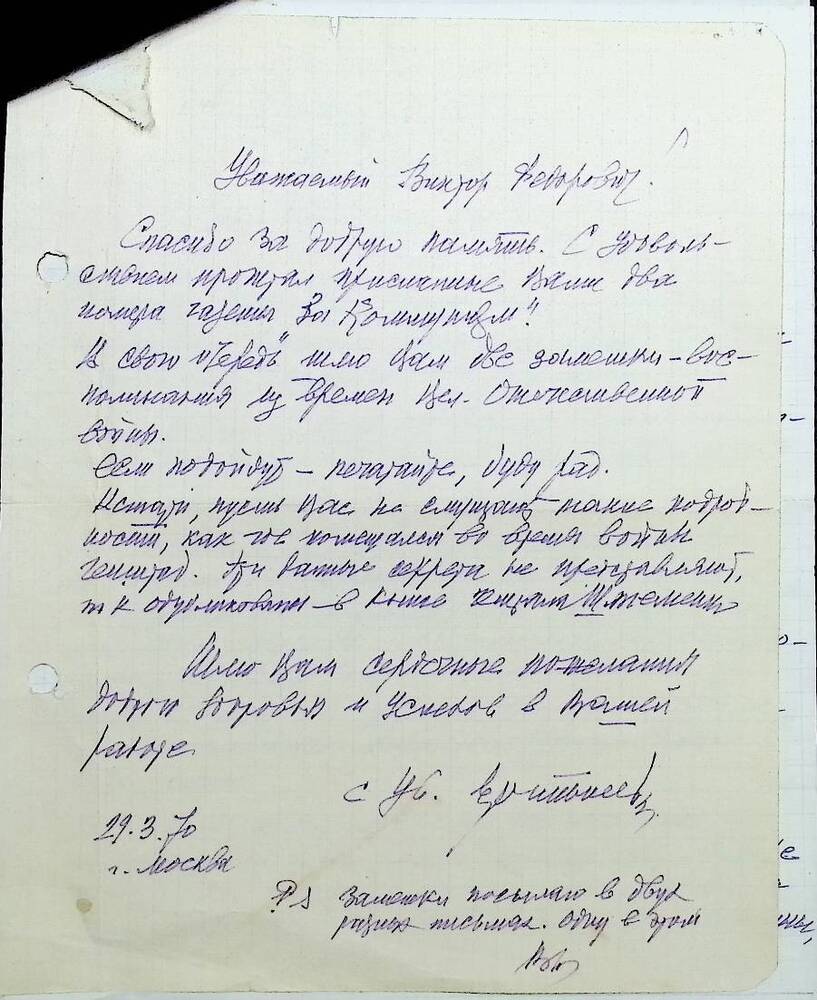 Уважаемый Виктор Федорович!
Спасибо за добрую память. С удоволь-
ствием прочитал присланные Вами два
номера газеты "За Коммунизм".
В свою очередь шлю Вам две заметки – вос-
поминания из времен Вел. Отечественной
войны.
Если подойдут – печатайте, буду рад.
Кстати, пусть Вас не смущают такие подроб-
ности, как где помещался во время войны
Генштаб. Эти данные секрета не представляют,
т к опубликованы в книге генерала Штеменко
Шлю Вам сердечные пожелания
доброго здоровья и успехов в Вашей
работе
с Ув.
29.3.70
г. Москва
PS Заметки посылаю в двух
разных письмах. Одну в этом